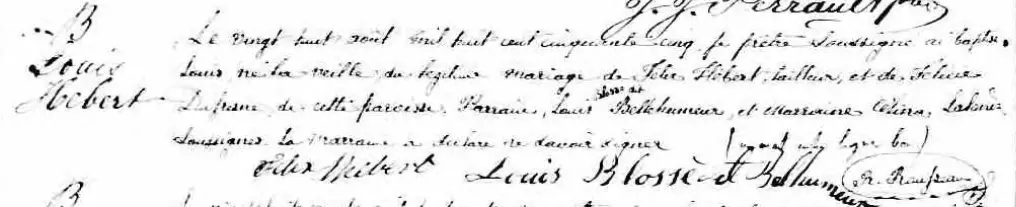 J. J. Perrault
B
Louis
Hébert
Le vingt huit août mil huit cent cinquante cinq je prêtre soussigné ai baptisé
Louis, né la veille du légitime mariage de Félix Hébert, tailleur, et de Félicie
Dufresne de cette paroisse. Parrain, Louis Blossé dit Bellehumeur, et Marraine Célina
soussignés la marraine a déclaré ne savoir signer
Félix Hébert Louis Blossé dit Bellhumeur
B